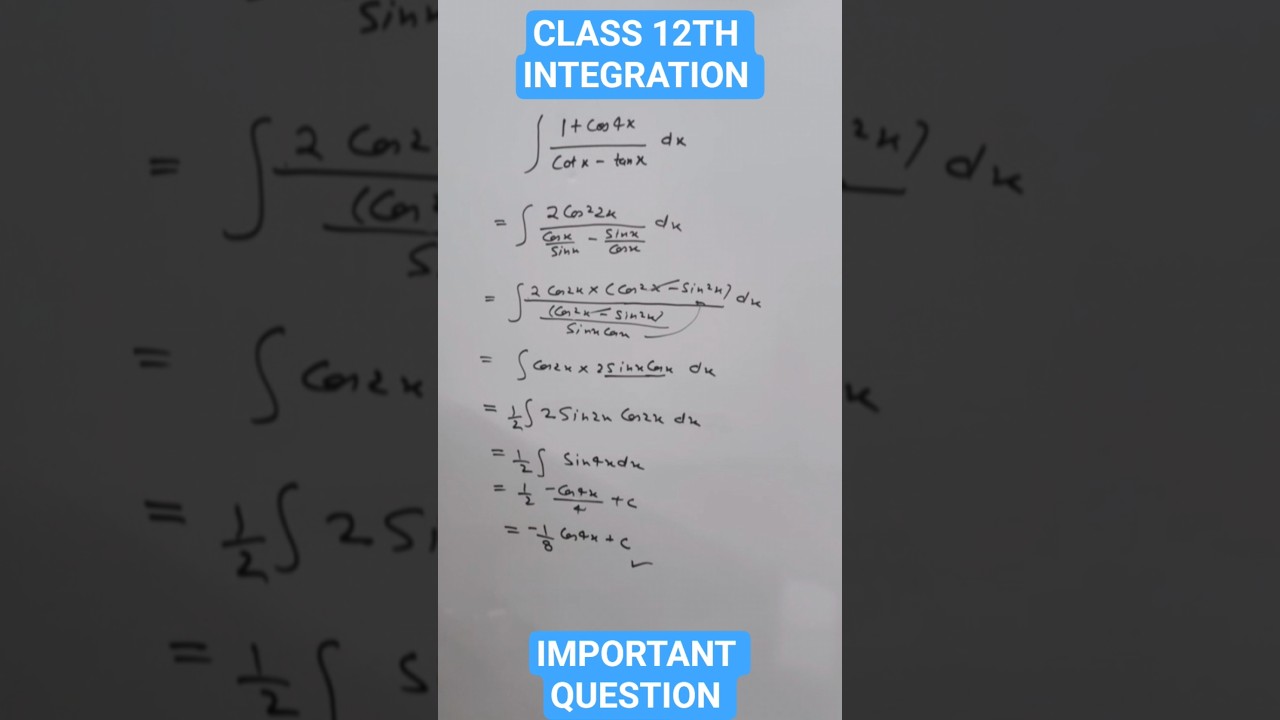 CLASS 12TH
INTEGRATION
∫ (1 + cos4x)/(cotx − tanx) dx
= ∫ (2cos²2x)/(cosx/sinx − sinx/cosx) dx
= ∫ (2cos2x × (cos²x − sin²x))/((cos²x − sin²x)/(sinx cosx)) dx
= ∫ cos2x × 2sinx cosx dx
= 1/2 ∫ 2 sin2x cos2x dx
= 1/2 ∫ sin4x dx
= 1/2 −cos4x/4 + c
= −1/8 cos4x + c
IMPORTANT
QUESTION